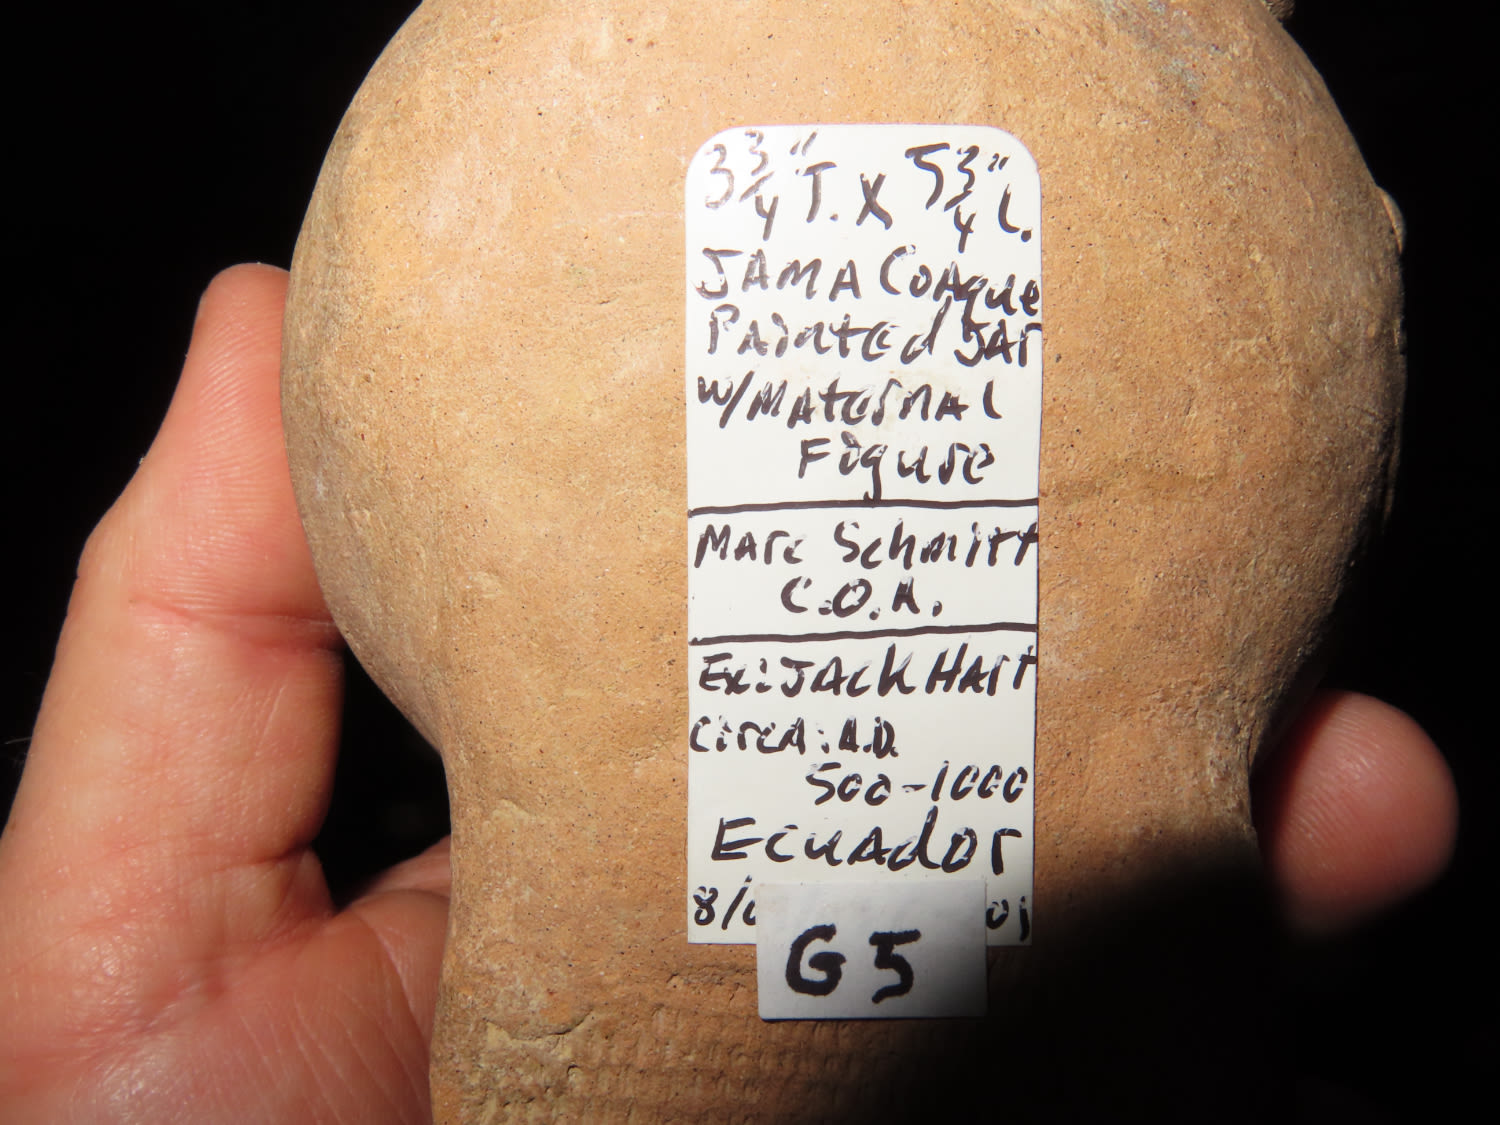 3 3/4" T. X 5 3/4" L.
JAMA COAque
PAinted JAr
W/MAternAL
Figure
MArc Schmitt
C.O.A.
Ex: JAck HArt
Circa: A.D.
500-1000
EcuAdor
G5